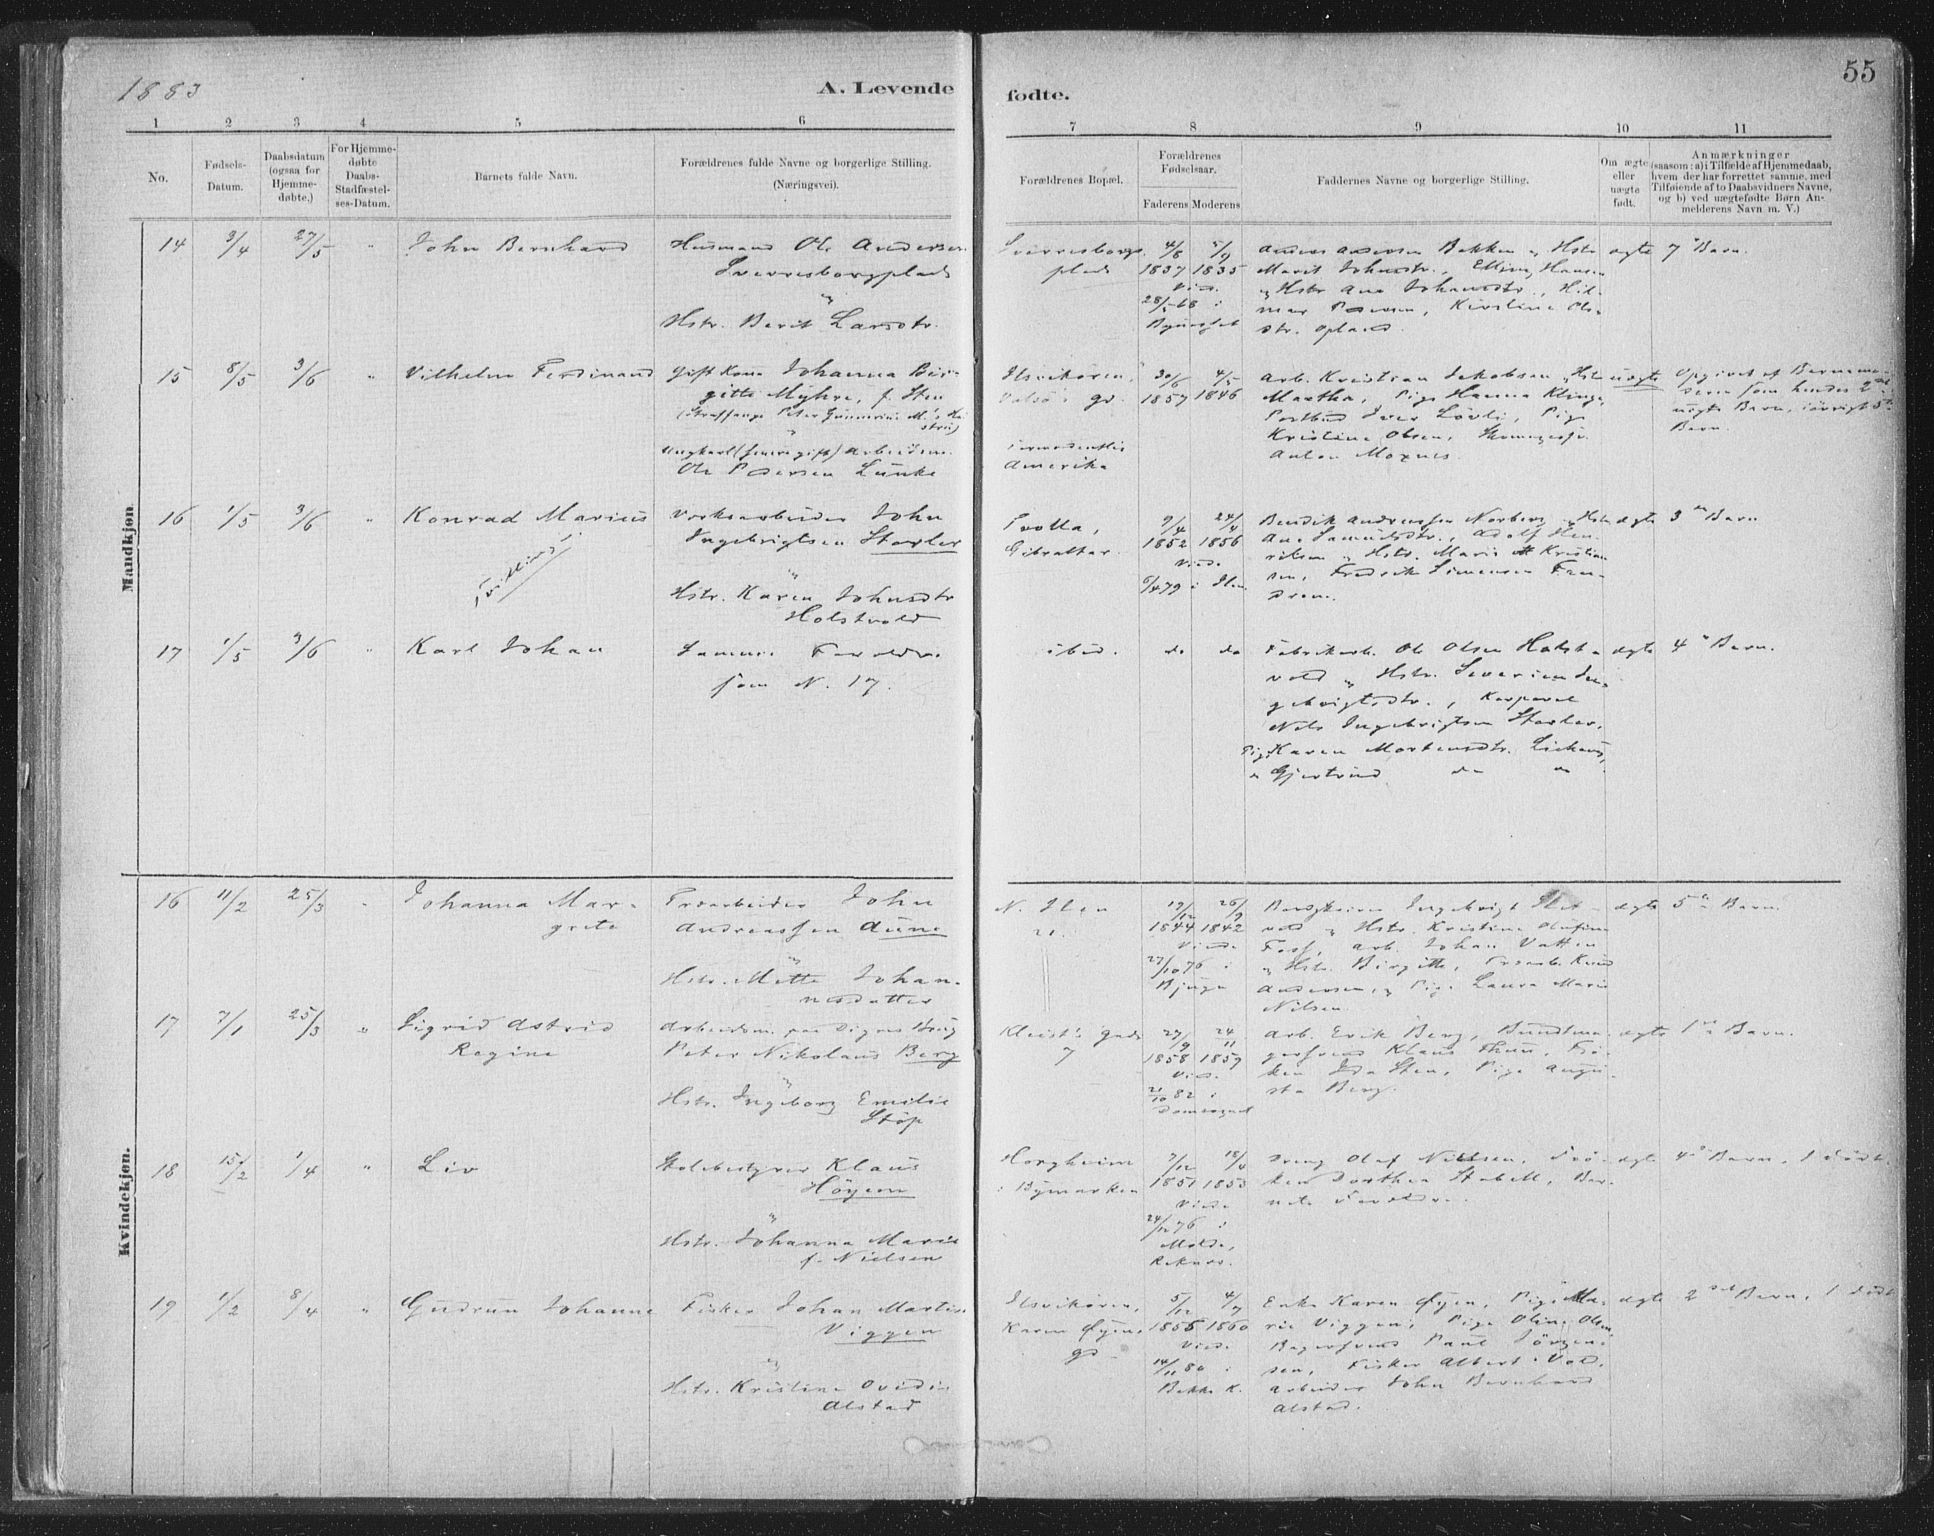 1883
A. Levende
fødte.
55
1 2 3 4 5 6 7 8 9 10 11
No.
Fødsels-
Datum.
Daabsdatum
(ogsaa for
Hjemme-
døbte.)
For Hjemme-
døbte
Daabs-
Stadfæstel-
ses-Datum.
Barnets fulde Navn.
Forældrenes fulde Navne og borgerlige Stilling.
(Næringsvei).
Forældrenes Bopæl.
Forældrenes
Fødselsaar.
Faderens Moderens
Faddernes Navne og borgerlige Stilling.
Om ægte
eller
uægte
født.
Anmærkninger
(saasom: a) i Tilfælde af Hjemmedaab,
hvem der har forrettet samme, med
Tilføiende af to Daabsvidners Navne,
og b) ved uægtefødte Børn An-
melderens Navn m. V.)
Mandkjøn.
14 3/4 27/5 " John Bernhard
Husmand Ole Andersen
Sverresborgplads
&
Hstr. Berit Larsdtr.
Sverresborgs
plads
4/8 5/9
1837 1835
Vied
28/5 68 i
Bynesset
Anders Andersen Bakken & Hstr
Marit Johnsdtr., Elling Hansen
& Hstr Ane Johansdtr, Hil-
mar Pedersen, Kirstine Ols-
dtr. Opland.
ægte
7de Barn.
15 8/5 3/6 " Vilhelm Ferdinand
Gift Kone Johanna Bir-
gitte Myhre, f. Sten
&
Ungkarl (senere gift) Arbeidsm.
Ole Pedersen Lunke
Ilsvikøren,
Valsö's gd.
formodentlig
Amerika
30/6 4/5
1857 1846
Arb. Kristian Jakobsen & Hstr
Martha, Pige Hanna Klinge,
Postbud Iver Lövli, Pige
Kristine Olsen, Skomagersv.
Anton Moxnes.
uægte
Opgivet af Barnemo-
deren som hendes 2det
uægte Barn, iövrigt 5te
Barn.
16 1/5 3/6 " Konrad Marius
Tvilling!
Værksarbeider John
Ingebrigtsen Stavler
&
Hstr. Karen Johnsdtr
Holstvold
Trolla,
Gibraltar.
9/4 24/4
1852 1856
Viede
6/4 79 i Ilen
Bendik Andreassen Norberg & Hstr
Ane Samuelsdtr., Adolf Hen-
riksen & Hstr. Marie Kristian
sen, Fredrik Simensen Fen-
drem.
ægte
3die Barn
17 1/5 3/6 " Karl Johan
Samme Forældre
som N. 17.
ibid. do do
Fabrikarb. Ole Olsen Holst-
vold & Hstr. Severine In-
gebrigtsdtr., Korporal
Nils Ingebrigtsen Stavler,
Pige Karen Mortensdtr.
& Gjertrud do do
ægte
4de Barn.
Kvindekjøn.
16 11/2 25/3 " Johanna Mar-
grete
Træarbeider John
Andreassen Aune
&
Hstr. Mette Johan-
nesdatter
N. Ilen
21.
19/12 26/9
1844 1842
Viede
27/10 76 i
Bjugn
Ingebrigt Slet-
vold & Hstr. Kristine Olufine
Foss, Arb. Johan Vatten
& Hstr. Birgitte, Træarb. Knud
Andersen, & Pige Laura Marie
Nilsen.
ægte
5te Barn.
17 7/1 25/3 " Sigrid Astrid
Regine
Arbeidsm. paa Digres Brug
Peter Nikolaus Berg
&
Hstr. Ingeborg Emilie
Stöp
Kleist's Gade
7
27/9 24/11
1858 1859
Viede
21/10 82 i
Domsognet
Arb. Erik Berg, Bundtma-
gersvend Klaus Thun, Frö-
ken Ida Sten, Pige Augu-
sta Berg.
ægte
1ste Barn.
18 15/2 1/4 " Liv
Skolebestyrer Klaus
Höyem
&
Hstr. Johanna Marie
f. Nielsen
Horgheim
i Bymarken
7/12 18/4
1851 1853
Viede
24/12 76 i
Molde,
Reknes.
Dreng Olaf Nielsen, Frö-
ken Dorthea Stabell, Bar-
nets Forældre.
ægte
4de Barn, 1 dödf.
19 1/2 8/4 " Gudrun Johanne
Fisker Johan Martin
Viggen
&
Hstr. Kristine Ovidie
Alstad
Ilsvikøren,
Karen Øyens
gd
5/12 4/7
1856 1860
Viede
14/11 80 i
Bakke K.
Enke Karen Øyen, Pige Ma-
rie Viggen, Pige Oline Olsen
Bagersvend Paul Jörgen-
sen, Fisker Albert Vold,
Arbeider John Bernhard
Alstad.
ægte
2det Barn, 1 dödf.